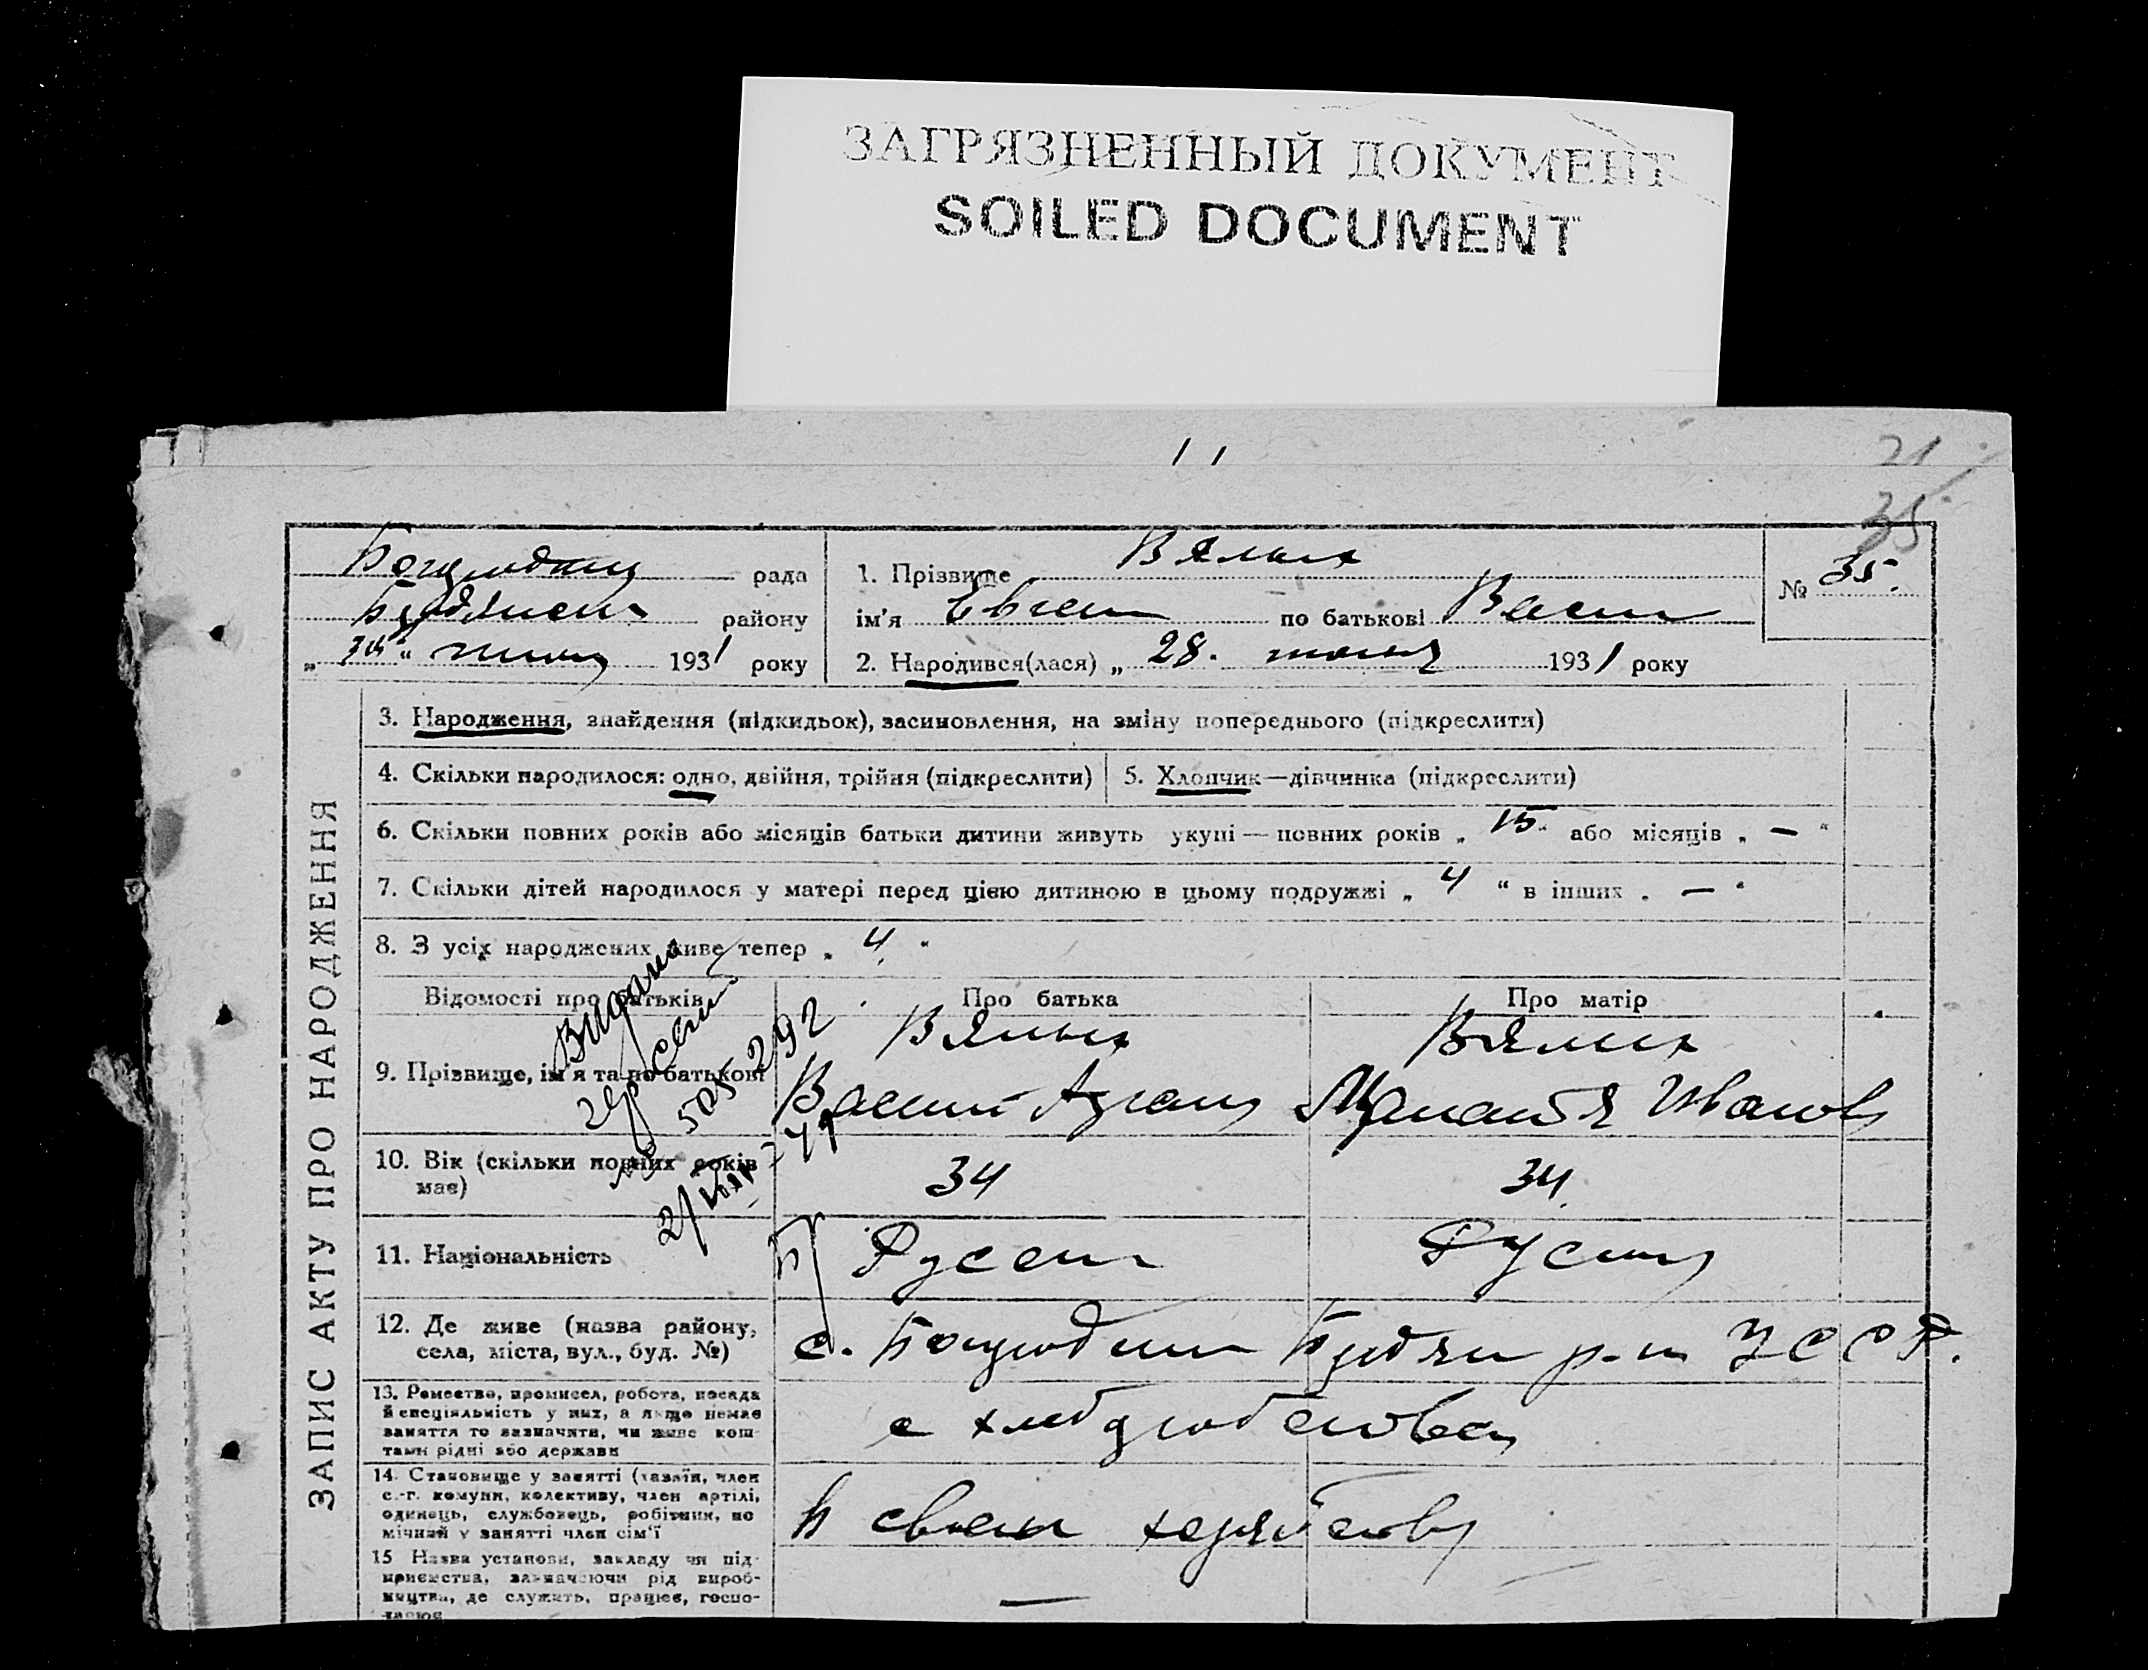 ЗАГРЯЗНЕННЫЙ ДОКУМЕНТ
SOILED DOCUMENT
21
35
рада
району
" 30 " 1931 року
1. Прізвище Вялых
ім'я Евген по батькові Васил
2. Народився(лася) „ 28. 1931 року
№ 35.
ЗАПИС АКТУ ПРО НАРОДЖЕННЯ
3. Народження, знайдення (підкидьок), засиновлення, на зміну попереднього (підкреслити)
4. Скільки народилося: одно, двійня, трійня (підкреслити)
5. Хлопчик—дівчинка (підкреслити)
6. Скільки повних років або місяців батьки дитини живуть укупі — повних років „ 15 " або місяців „ — "
7. Скільки дітей народилося у матері перед цією дитиною в цьому подружжі „ 4 " в інших „ — "
8. З усіх народжених живе тепер „ 4 "
Відомості про батьків
Про батька
Про матір
9. Прізвище, ім'я та по батькові
Вялых
Вялых
Васили
Иванов
Видано
505292
10. Вік (скільки повних років має)
34
34
11. Національність
Русск
12. Де живе (назва району,
села, міста, вул., буд. №)
с. Будян р-н УССР.
13. Ремество, промисел, робота, посада
й спеціяльність у них, а якщо немає
заняття то зазначити, чи живе кош-
тами рідні або держави
14. Становище у занятті (хазяїн, член
с.-г. комуни, колективу, член артілі,
одинець, службовець, робітник, по
мічний у занятті член сім'ї
В своем
15 Назва установи, закладу чи під-
приємства, зазначаючи рід вироб-
ництва, де служить, працює, госпо-
дарює
—